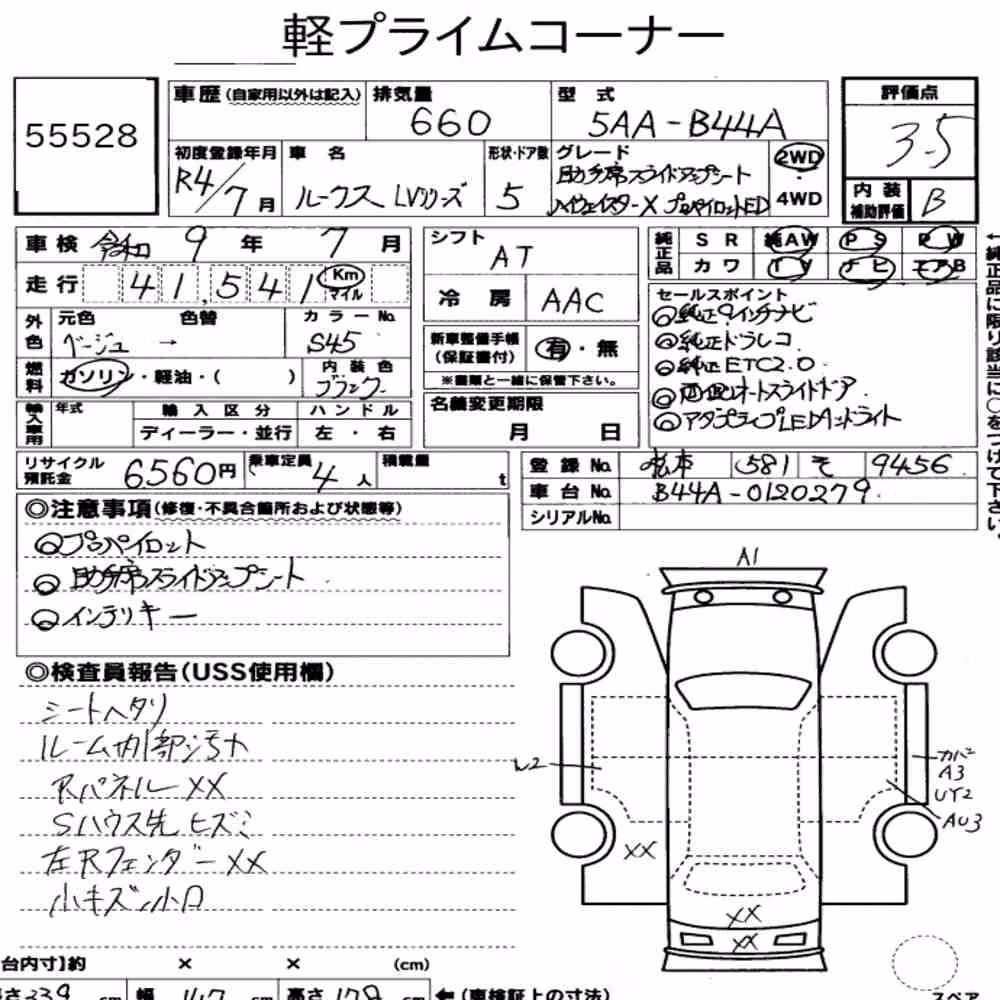 軽プライムコーナー
55528
車歴 (自家用以外は記入)
排気量
660
型式
5AA-B44A
評価点
3.5
初度登録年月
R4/7月
車名
ルークス LVリーズ
形状・ドア数
5
グレード
助手席スライドアップシート
ハイウェイスターX プロパイロットED
2WD
・
4WD
内装
補助評価
B
車検 令和 9年 7月
走行 41,541 Km
マイル
シフト AT
冷房 AAC
純正品
SR 純AW PS PW
カワ TV ナビ エアB
外色
元色 色替 カラーNo.
ベージュ → S45
燃料
ガソリン・軽油・( )
内装色
ブラック
新車整備手帳
(保証書付)
有・無
※書類と一緒に保管下さい。
セールスポイント
◎純正9インチナビ
◎純正ドラレコ
◎純正ETC2.0
◎両側オートスライドドア
◎アダプティブLEDヘッドライト
輸入車用
年式 輸入区分 ハンドル
ディーラー・並行 左・右
名義変更期限
月 日
←純正品に限り該当に○をつけて下さい。
リサイクル
預託金
6560円
乗車定員
4人
積載量
t
登録No. 松本 581 そ 9456
車台No. B44A-0120279
シリアルNo.
◎注意事項(修復・不具合箇所および状態等)
◎プロパイロット
◎助手席スライドアップシート
◎インテリキー
◎検査員報告(USS使用欄)
シートヘタリ
ルーム内外部汚れ
Rパネル XX
Sハウス先ヒズミ
左Rフェンダー XX
小キズ小凹
A1
W2
カバー
A3
UY2
AU3
XX
XX
XX
台内寸】約 × × (cm)
長さ339cm 幅147cm 高さ178cm ←(車検証上の寸法)
スペア